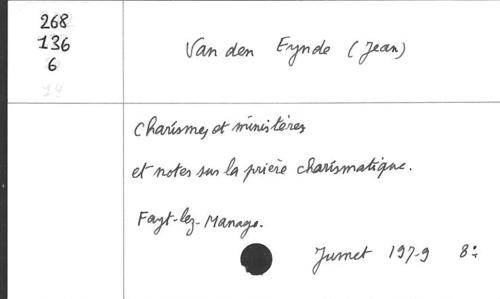 268
136
6
Van den Eynde (Jean)
Charismes et ministères
et notes sur la prière charismatique.
Fayt-lez-Manage.
Jumet 197-9 8: